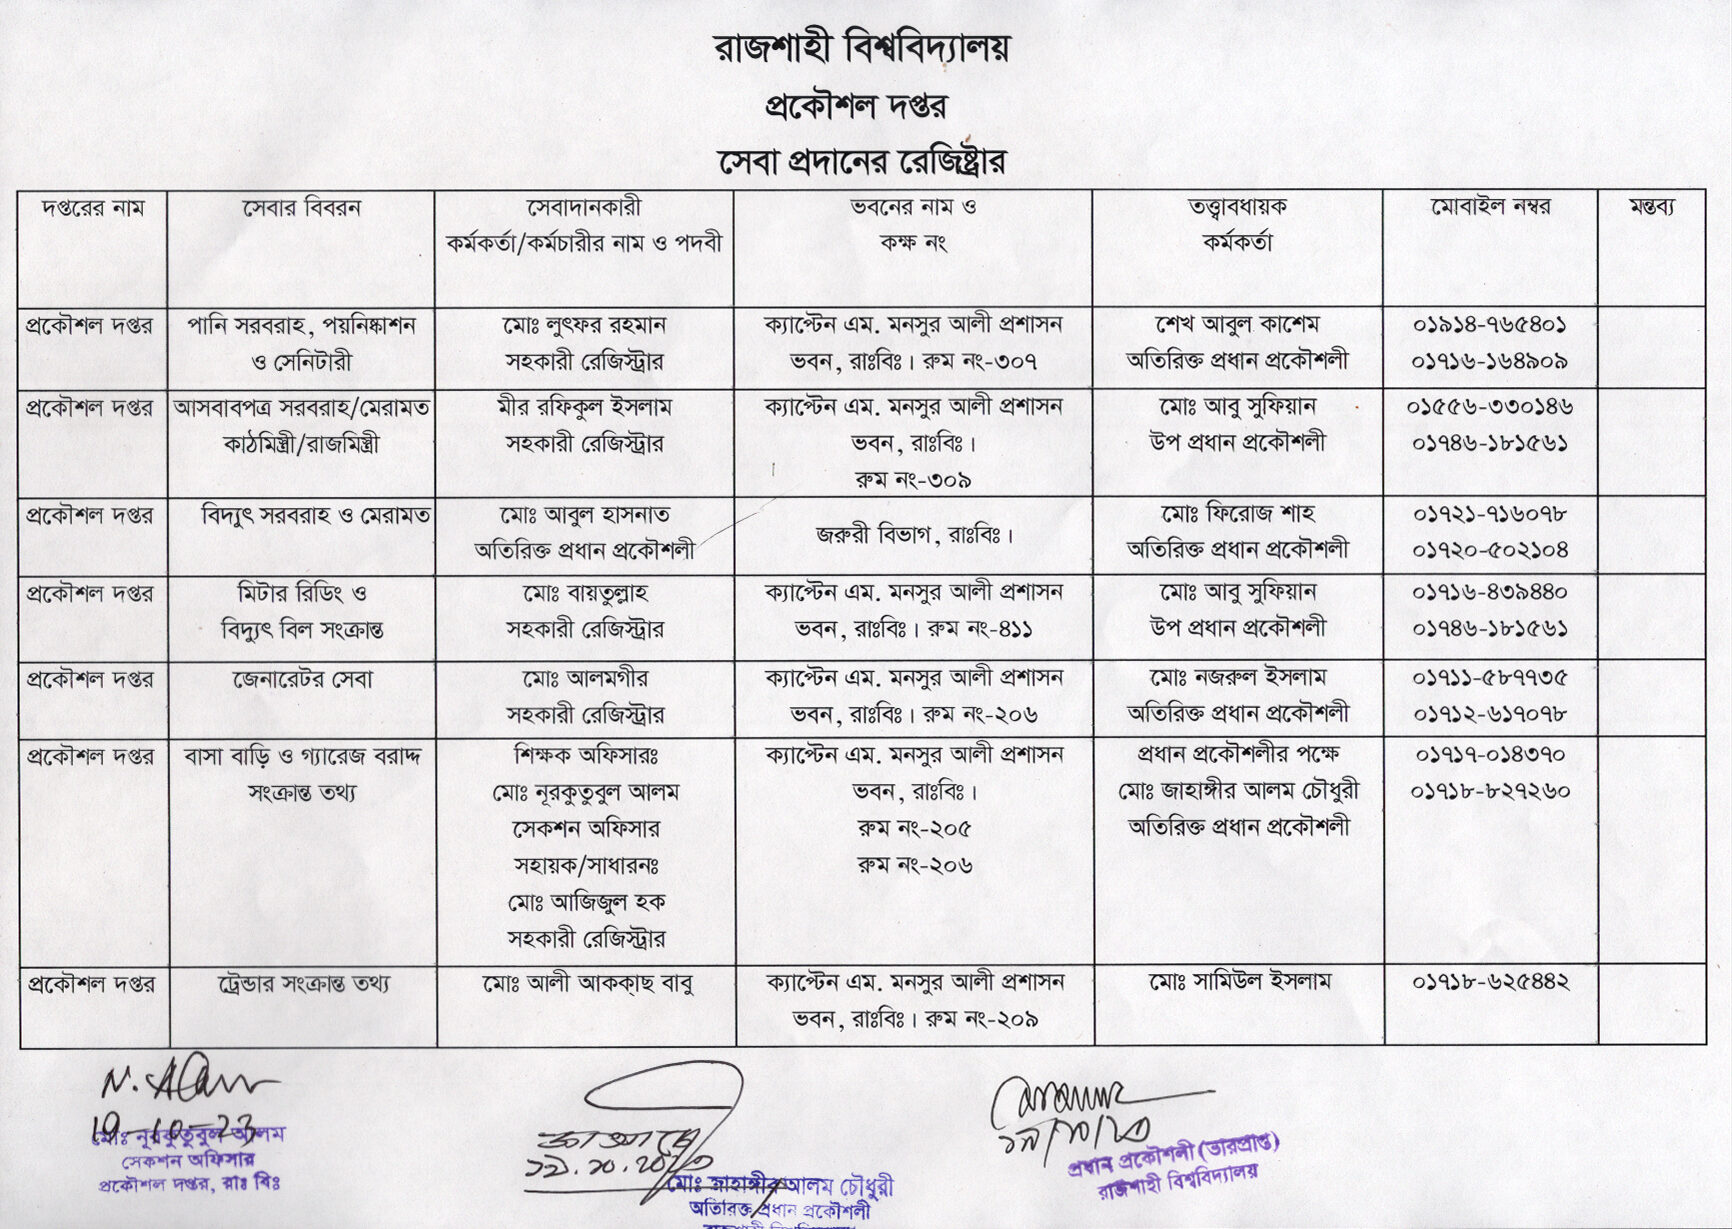 রাজশাহী বিশ্ববিদ্যালয়
প্রকৌশল দপ্তর
সেবা প্রদানের রেজিষ্ট্রার
দপ্তরের নাম
সেবার বিবরন
সেবাদানকারী
কর্মকর্তা/কর্মচারীর নাম ও পদবী
ভবনের নাম ও
কক্ষ নং
তত্ত্বাবধায়ক
কর্মকর্তা
মোবাইল নম্বর
মন্তব্য
প্রকৌশল দপ্তর
পানি সরবরাহ, পয়নিষ্কাশন
ও সেনিটারী
মোঃ লুৎফর রহমান
সহকারী রেজিস্ট্রার
ক্যাপ্টেন এম. মনসুর আলী প্রশাসন
ভবন, রাঃবিঃ। রুম নং-৩০৭
শেখ আবুল কাশেম
অতিরিক্ত প্রধান প্রকৌশলী
০১৯১৪-৭৬৫৪০১
০১৭১৬-১৬৪৯০৯
প্রকৌশল দপ্তর
আসবাবপত্র সরবরাহ/মেরামত
কাঠমিস্ত্রী/রাজমিস্ত্রী
মীর রফিকুল ইসলাম
সহকারী রেজিস্ট্রার
ক্যাপ্টেন এম. মনসুর আলী প্রশাসন
ভবন, রাঃবিঃ।
রুম নং-৩০৯
মোঃ আবু সুফিয়ান
উপ প্রধান প্রকৌশলী
০১৫৫৬-৩৩০১৪৬
০১৭৪৬-১৮১৫৬১
প্রকৌশল দপ্তর
বিদ্যুৎ সরবরাহ ও মেরামত
মোঃ আবুল হাসনাত
অতিরিক্ত প্রধান প্রকৌশলী
জরুরী বিভাগ, রাঃবিঃ।
মোঃ ফিরোজ শাহ
অতিরিক্ত প্রধান প্রকৌশলী
০১৭২১-৭১৬০৭৮
০১৭২০-৫০২১০৪
প্রকৌশল দপ্তর
মিটার রিডিং ও
বিদ্যুৎ বিল সংক্রান্ত
মোঃ বায়তুল্লাহ
সহকারী রেজিস্ট্রার
ক্যাপ্টেন এম. মনসুর আলী প্রশাসন
ভবন, রাঃবিঃ। রুম নং-৪১১
মোঃ আবু সুফিয়ান
উপ প্রধান প্রকৌশলী
০১৭১৬-৪৩৯৪৪০
০১৭৪৬-১৮১৫৬১
প্রকৌশল দপ্তর
জেনারেটর সেবা
মোঃ আলমগীর
সহকারী রেজিস্ট্রার
ক্যাপ্টেন এম. মনসুর আলী প্রশাসন
ভবন, রাঃবিঃ। রুম নং-২০৬
মোঃ নজরুল ইসলাম
অতিরিক্ত প্রধান প্রকৌশলী
০১৭১১-৫৮৭৭৩৫
০১৭১২-৬১৭০৭৮
প্রকৌশল দপ্তর
বাসা বাড়ি ও গ্যারেজ বরাদ্দ
সংক্রান্ত তথ্য
শিক্ষক অফিসারঃ
মোঃ নূরকুতুবুল আলম
সেকশন অফিসার
সহায়ক/সাধারনঃ
মোঃ আজিজুল হক
সহকারী রেজিস্ট্রার
ক্যাপ্টেন এম. মনসুর আলী প্রশাসন
ভবন, রাঃবিঃ।
রুম নং-২০৫
রুম নং-২০৬
প্রধান প্রকৌশলীর পক্ষে
মোঃ জাহাঙ্গীর আলম চৌধুরী
অতিরিক্ত প্রধান প্রকৌশলী
০১৭১৭-০১৪৩৭০
০১৭১৮-৮২৭২৬০
প্রকৌশল দপ্তর
ট্রেন্ডার সংক্রান্ত তথ্য
মোঃ আলী আককাছ বাবু
ক্যাপ্টেন এম. মনসুর আলী প্রশাসন
ভবন, রাঃবিঃ। রুম নং-২০৯
মোঃ সামিউল ইসলাম
০১৭১৮-৬২৫৪৪২
N. Alam
19-10-23
মোঃ নূরকুতুবুল আলম
সেকশন অফিসার
প্রকৌশল দপ্তর, রাঃ বিঃ
মোঃ জাহাঙ্গীর আলম চৌধুরী
অতিরিক্ত প্রধান প্রকৌশলী
১৯/১০/২৩
প্রধান প্রকৌশলী (ভারপ্রাপ্ত)
রাজশাহী বিশ্ববিদ্যালয়